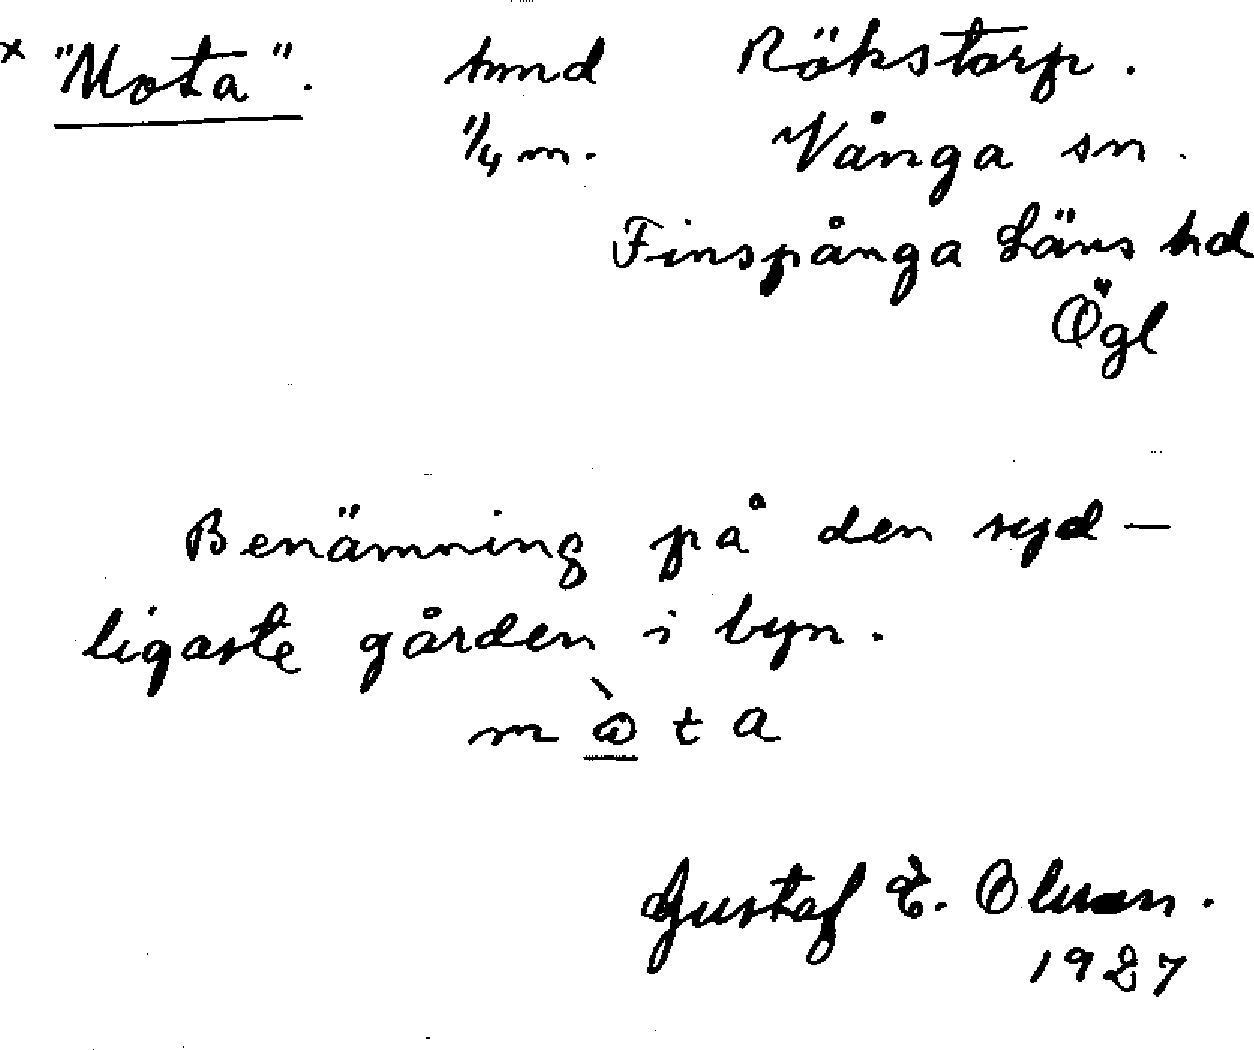 x "Mota". hmd Rökstorp.
1/4 m. Vånga sn.
Finspånga Läns hd
Ögl
Benämning på den syd-
ligaste gården i byn.
m ò t a
Gustaf E. Olsson.
1927